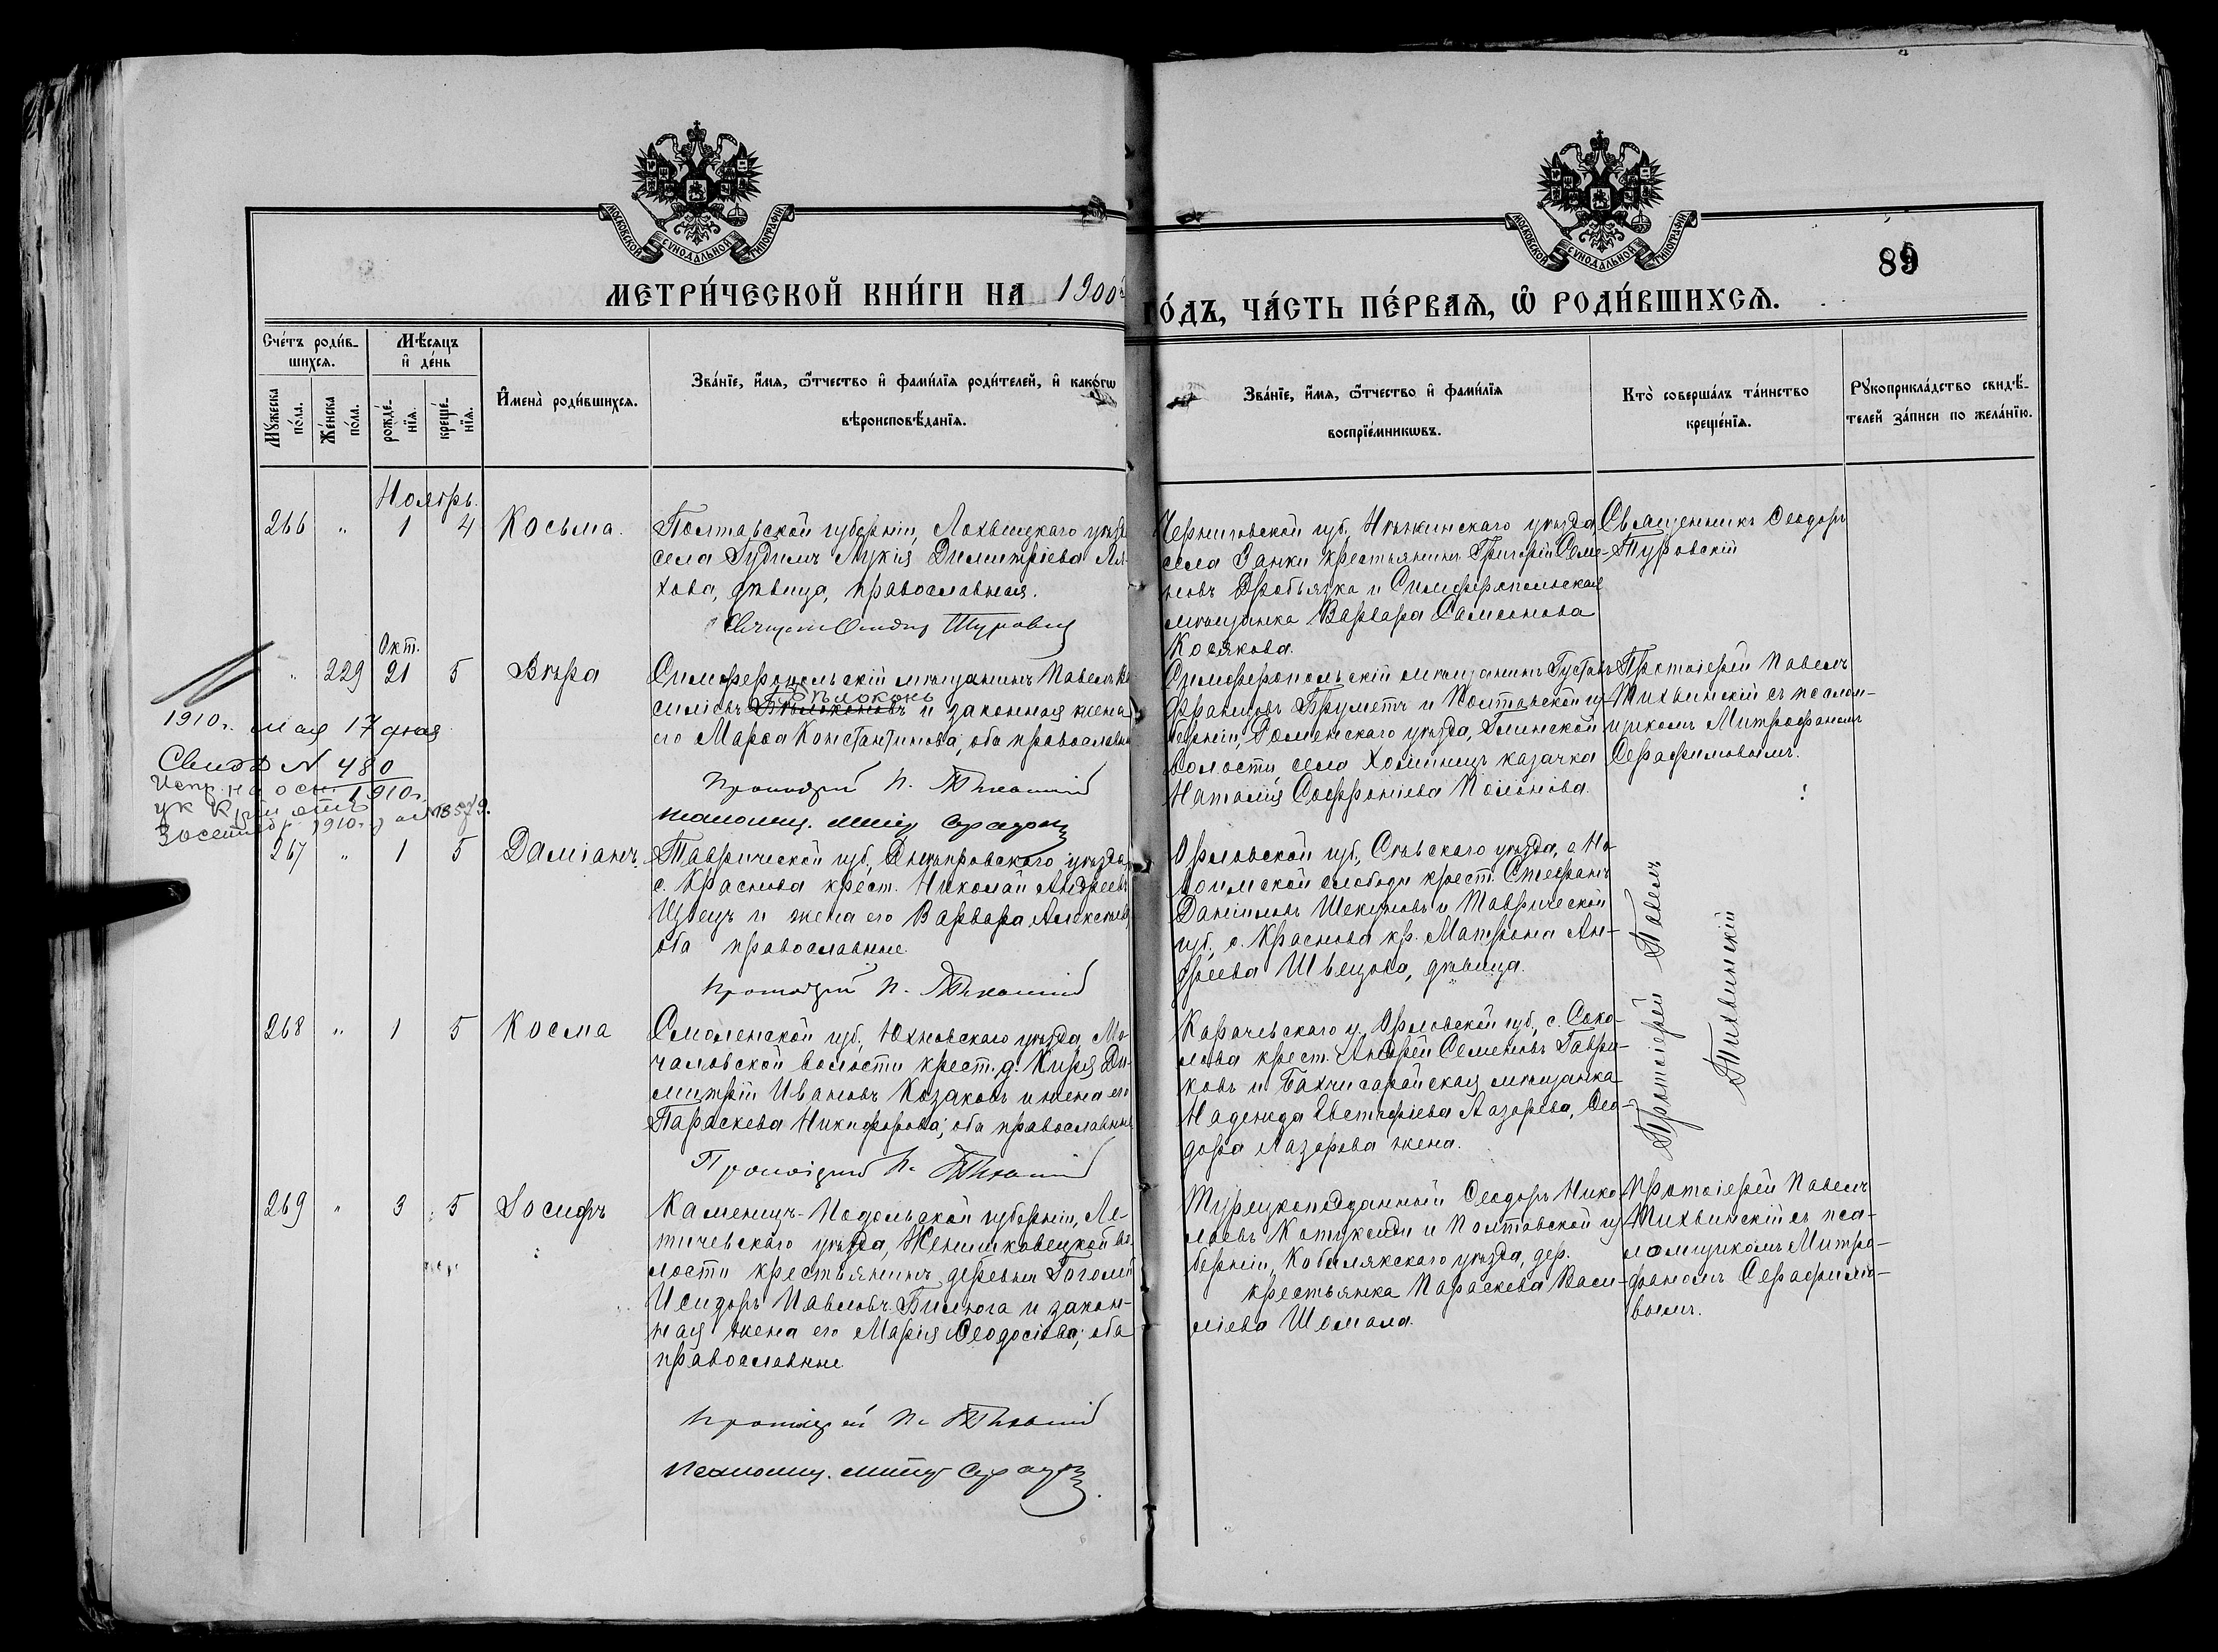 МОСКОВСКОЙ СѴНОДАЛЬНОЙ ТИПОГРАФІИ
МОСКОВСКОЙ СѴНОДАЛЬНОЙ ТИПОГРАФІИ
89
МЕТРИ́ЧЕСКОЙ КНИ́ГИ НА 1900й
ГО́ДЪ, ЧА́СТЬ ПЕ́РВАЯ, Ѽ РОДИ́ВШИХСѦ.
Сче́тъ роди́в-
шихсѧ.
Мѣ́сяцъ
и҆ де́нь
Мꙋ́жеска по́ла.
Же́нска по́ла.
рожде́-нїѧ.
креще́-нїѧ.
И҆мена̀ роди́вшихсѧ.
Зва́нїе, и҆́мѧ, ѻ҆́тчество и҆ фами́лїѧ роди́телей, и҆ како́гѡ
вѣроисповѣ́данїѧ.
Зва́нїе, и҆́мѧ, ѻ҆́тчество и҆ фами́лїѧ
воспрїе́мникѡвъ.
Кто̀ соверша́лъ та́инство
креще́нїѧ.
Рꙋкоприкла́дство свидѣ́-
телей за́писи по жела́нїю.
Ноябрь.
266 " 1 4 Косьма.
Полтавской губерніи, Лохвицкаго уѣзда
села Гудимъ Лукія Димитріева Ля-
хова, дѣвица, православная.
Священ. Ѳеодоръ Туровскій
Черниговской губ., Нѣжинскаго уѣзда,
села Занки крестьянинъ Григорій Семе-
новъ Дробязка и Симферопольская
мѣщанка Варвара Самсонова
Косякова.
Священникъ Ѳеодоръ
Туровскій
Окт.
" 229 21 5 Вѣра
Симферопольскій мѣщанинъ Павелъ Ва-
Бѣлоконь
силіевъ Бѣлоконовъ и законная жена
его Марѳа Константинова; оба православны
Протоіерей П. Тихвинскій
Псаломщ. Митр. Серафим
Симферопольскій мѣщанинъ Густавъ
Францовъ Пруметъ и Полтавской гу-
берніи, Роменскаго уѣзда, Глинской
волости села Хоминцъ казачка
Наталія Софроніева
Протоіерей Павелъ
Тихвинскій съ псалом-
щикомъ Митрофаномъ
Серафимовымъ.
1910г. мая 17 дня
Свидѣ. № 480
Испр. на осн. 1910г.
267 " 1 5 Даміанъ.
Таврической губ., Днѣпровскаго уѣзда,
с. Краснова крест. Николай Андреевъ
Швецъ и жена его Варвара Алексѣева,
оба православные.
Протоіерей П. Тихвинскій
Орловской губ., Сѣвскаго уѣзда, с. Но-
слободы крест. Стефанъ
Даніиловъ Шекуновъ и Таврической
губ. с. Краснова кр. Матрона Ан-
дреева Швецова, дѣвица.
Протоіерей Павелъ
Тихвинскій
268 " 1 5 Косма
Смоленской губ., Юхновскаго уѣзда, Мо-
чаловской волости крест. д. Кирѣя Ди-
митрій Ивановъ Козаковъ и жена его
Параскева Никифорова; оба православные
Протоіерей П. Тихвинскій
Карачевскаго у. Орловской губ., с. Соко-
лова крест. Андрей Семеновъ Гаври-
ковъ и Бахчисарайская мѣщанка
Надежда Евстафіева Лазорева, Ѳео-
дора Лазорева жена.
269 " 3 5 Іосифъ
Каменецъ-Подольской губерніи, Ле-
тичевскаго уѣзда, Женишковецкой во-
лости крестьянинъ деревни Гоголи
Исидоръ Павловъ Билюга и закон-
ная жена его Марія Ѳеодосіева; оба
православные
Протоіерей П. Тихвинскій
Псаломщ. Митр. Серафим
Турецкоподданный Ѳеодоръ Нико-
лаевъ Котукенди и Полтавской гу-
берніи, Кобелякскаго уѣзда, дер.
крестьянка Параскева Васи-
ліева Шомала.
Протоіерей Павелъ
Тихвинскій съ пса-
ломщикомъ Митро-
фаномъ Серафимо-
вымъ.